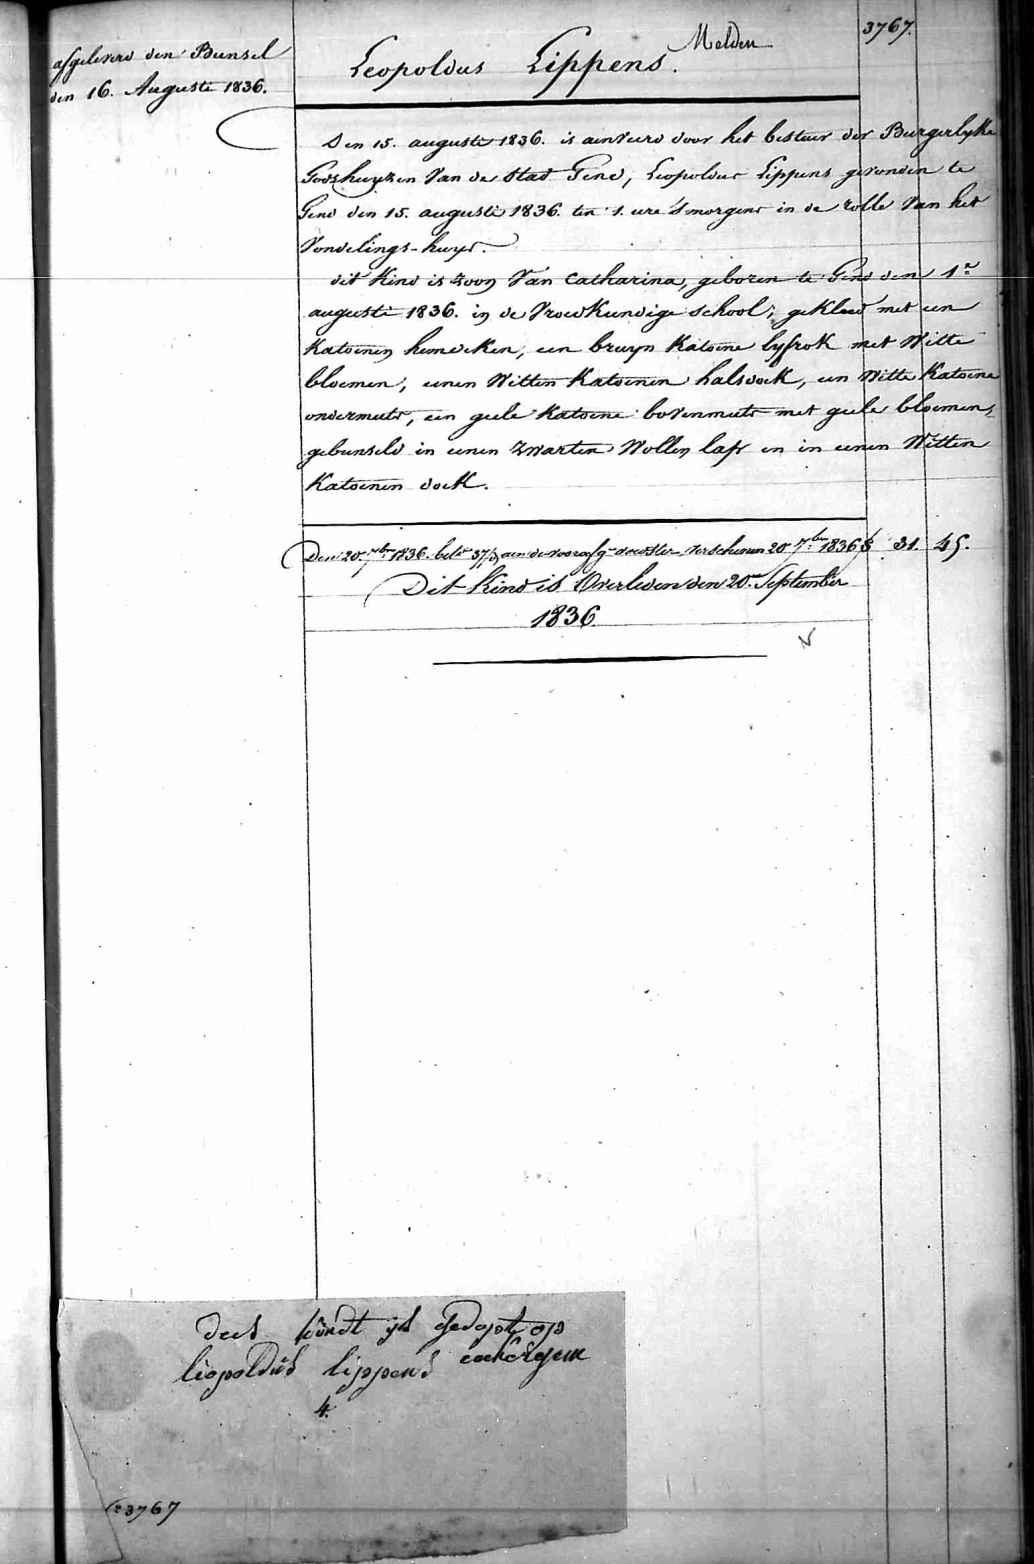 3767.
Melden
Leopoldus Lippens.
afgeleverd den Bunsel
den 16. Auguste 1836.
Den 15. auguste 1836. is aenveerd door het bestuer der Burgerlyke
Godshuyzen Van de Stad Gend, Leopoldus Lippens gevonden te
Gend den 15. auguste 1836. ten 1. ure 'smorgens in de rolle Van het
Vondelings-huys.
dit Kind is zoon Van Catharina, geboren te Gend den 1n
auguste 1836. in de Vroedkundige school; gekleed met een
Katoenen hemdeken, een bruyn Katoene lyfrok met Witte
bloemen, eenen Witten Katoenen halsdoek, een Witte Katoene
ondermuts, een geele Katoene bovenmuts met geele bloemen,
gebunseld in eenen zwarten Wollen lap en in eenen Witten
Katoenen doek.
Den 20. 7ber 1836. bet. 37/3 aen de voedster Verschenen 20 7ber 1836 f 31. 45.
Dit Kind is Overleden den 20en September
1836.
dees kindt is gedopt op
liopoldus lippens
4.
No 3767